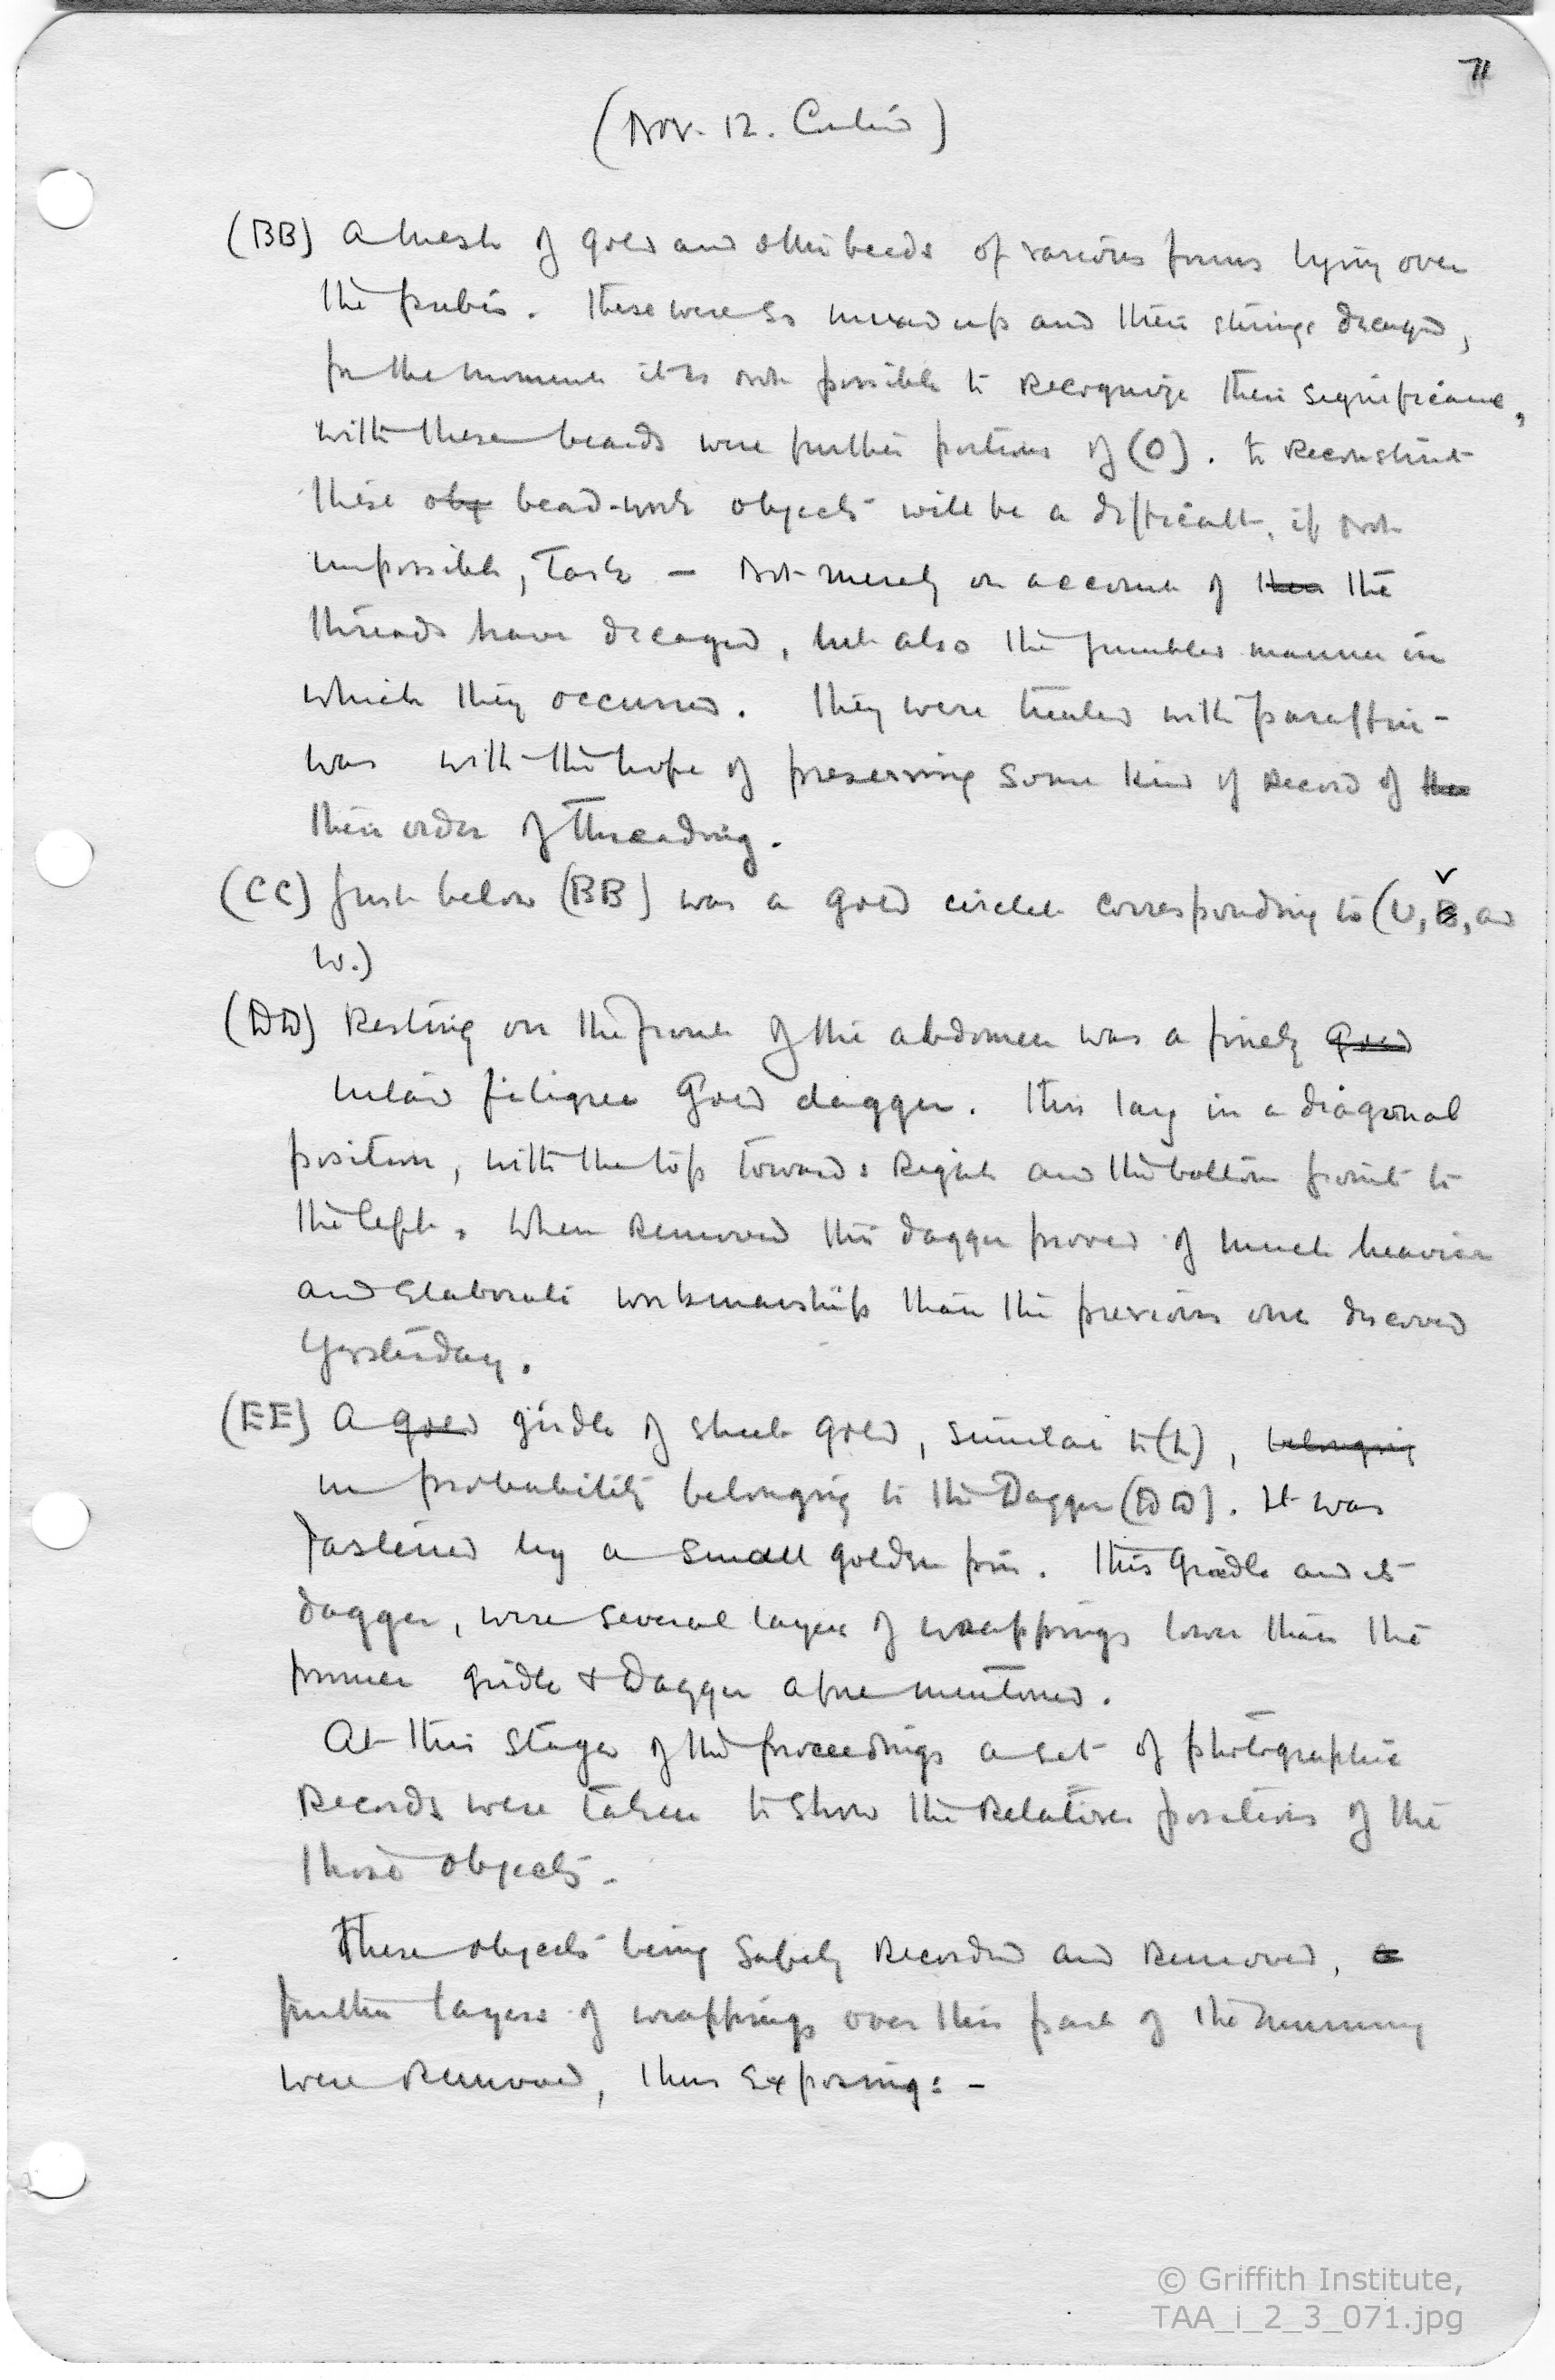 71
(Nov. 12. Contin)
(BB) A mesh of gold and other beads of various forms lying over
the pubis. These were so mixed up and their strings decayed,
for the moment it is not possible to recognize their significance,
with these beards were further portions of (O). To reconstruct
these obj bead-work objects will be a difficult, if not
impossible, task – not merely on account of ther the
threads have decayed, but also the jumbled manner in
which they occurred. They were treated with paraffin-
wax with the hope of preserving some kind of record of the
their order of threading.
(CC) Just below (BB) was a gold circlet corresponding to (U, V, and
W.)
(DD) Resting on the front of the abdomen was a finely gold
inlaid filigree Gold dagger. This lay in a diagonal
position, with the top towards right and the bottom point to
the left. When removed this dagger proved of much heavier
and elaborate workmanship than the previous one discoved
yesterday.
(EE) A gold girdle of sheet gold, similar to (L), belonging
in probability belonging to the Dagger (DD). It was
fastened by a small golden pin. This Girdle and its
dagger, were several layers of wrappings lower than the
former girdle & Dagger aforementioned.
At this stage of the proceedings a set of photographic
Records were taken to show the relative positions of the
those objects.
These objects being safely recorded and removed, a
further layers of wrappings over this part of the mummy
were removed, thus exposing: -
© Griffith Institute,
TAA_i_2_3_071.jpg